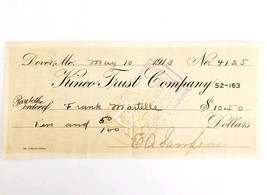 Dover, Me. May 10 1913 No. 4125
Kineo Trust Company 52-163
Pay to the order of Frank Martelle $10.50
Ten and 50/100 Dollars